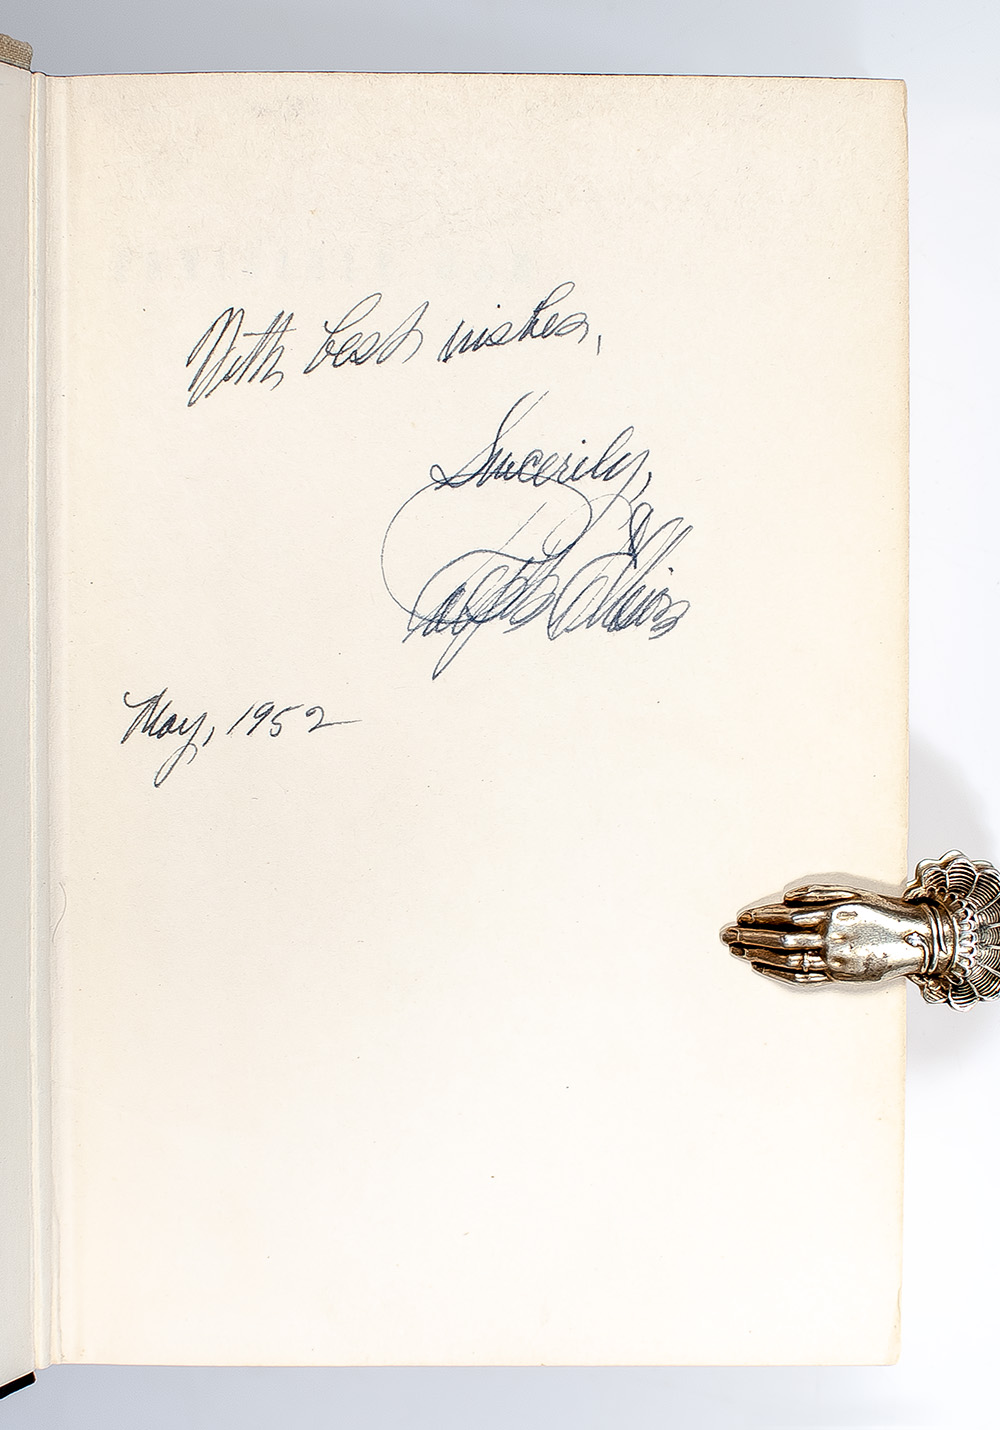 With best wishes,
Sincerily,
Ralph Ellison
May, 1952